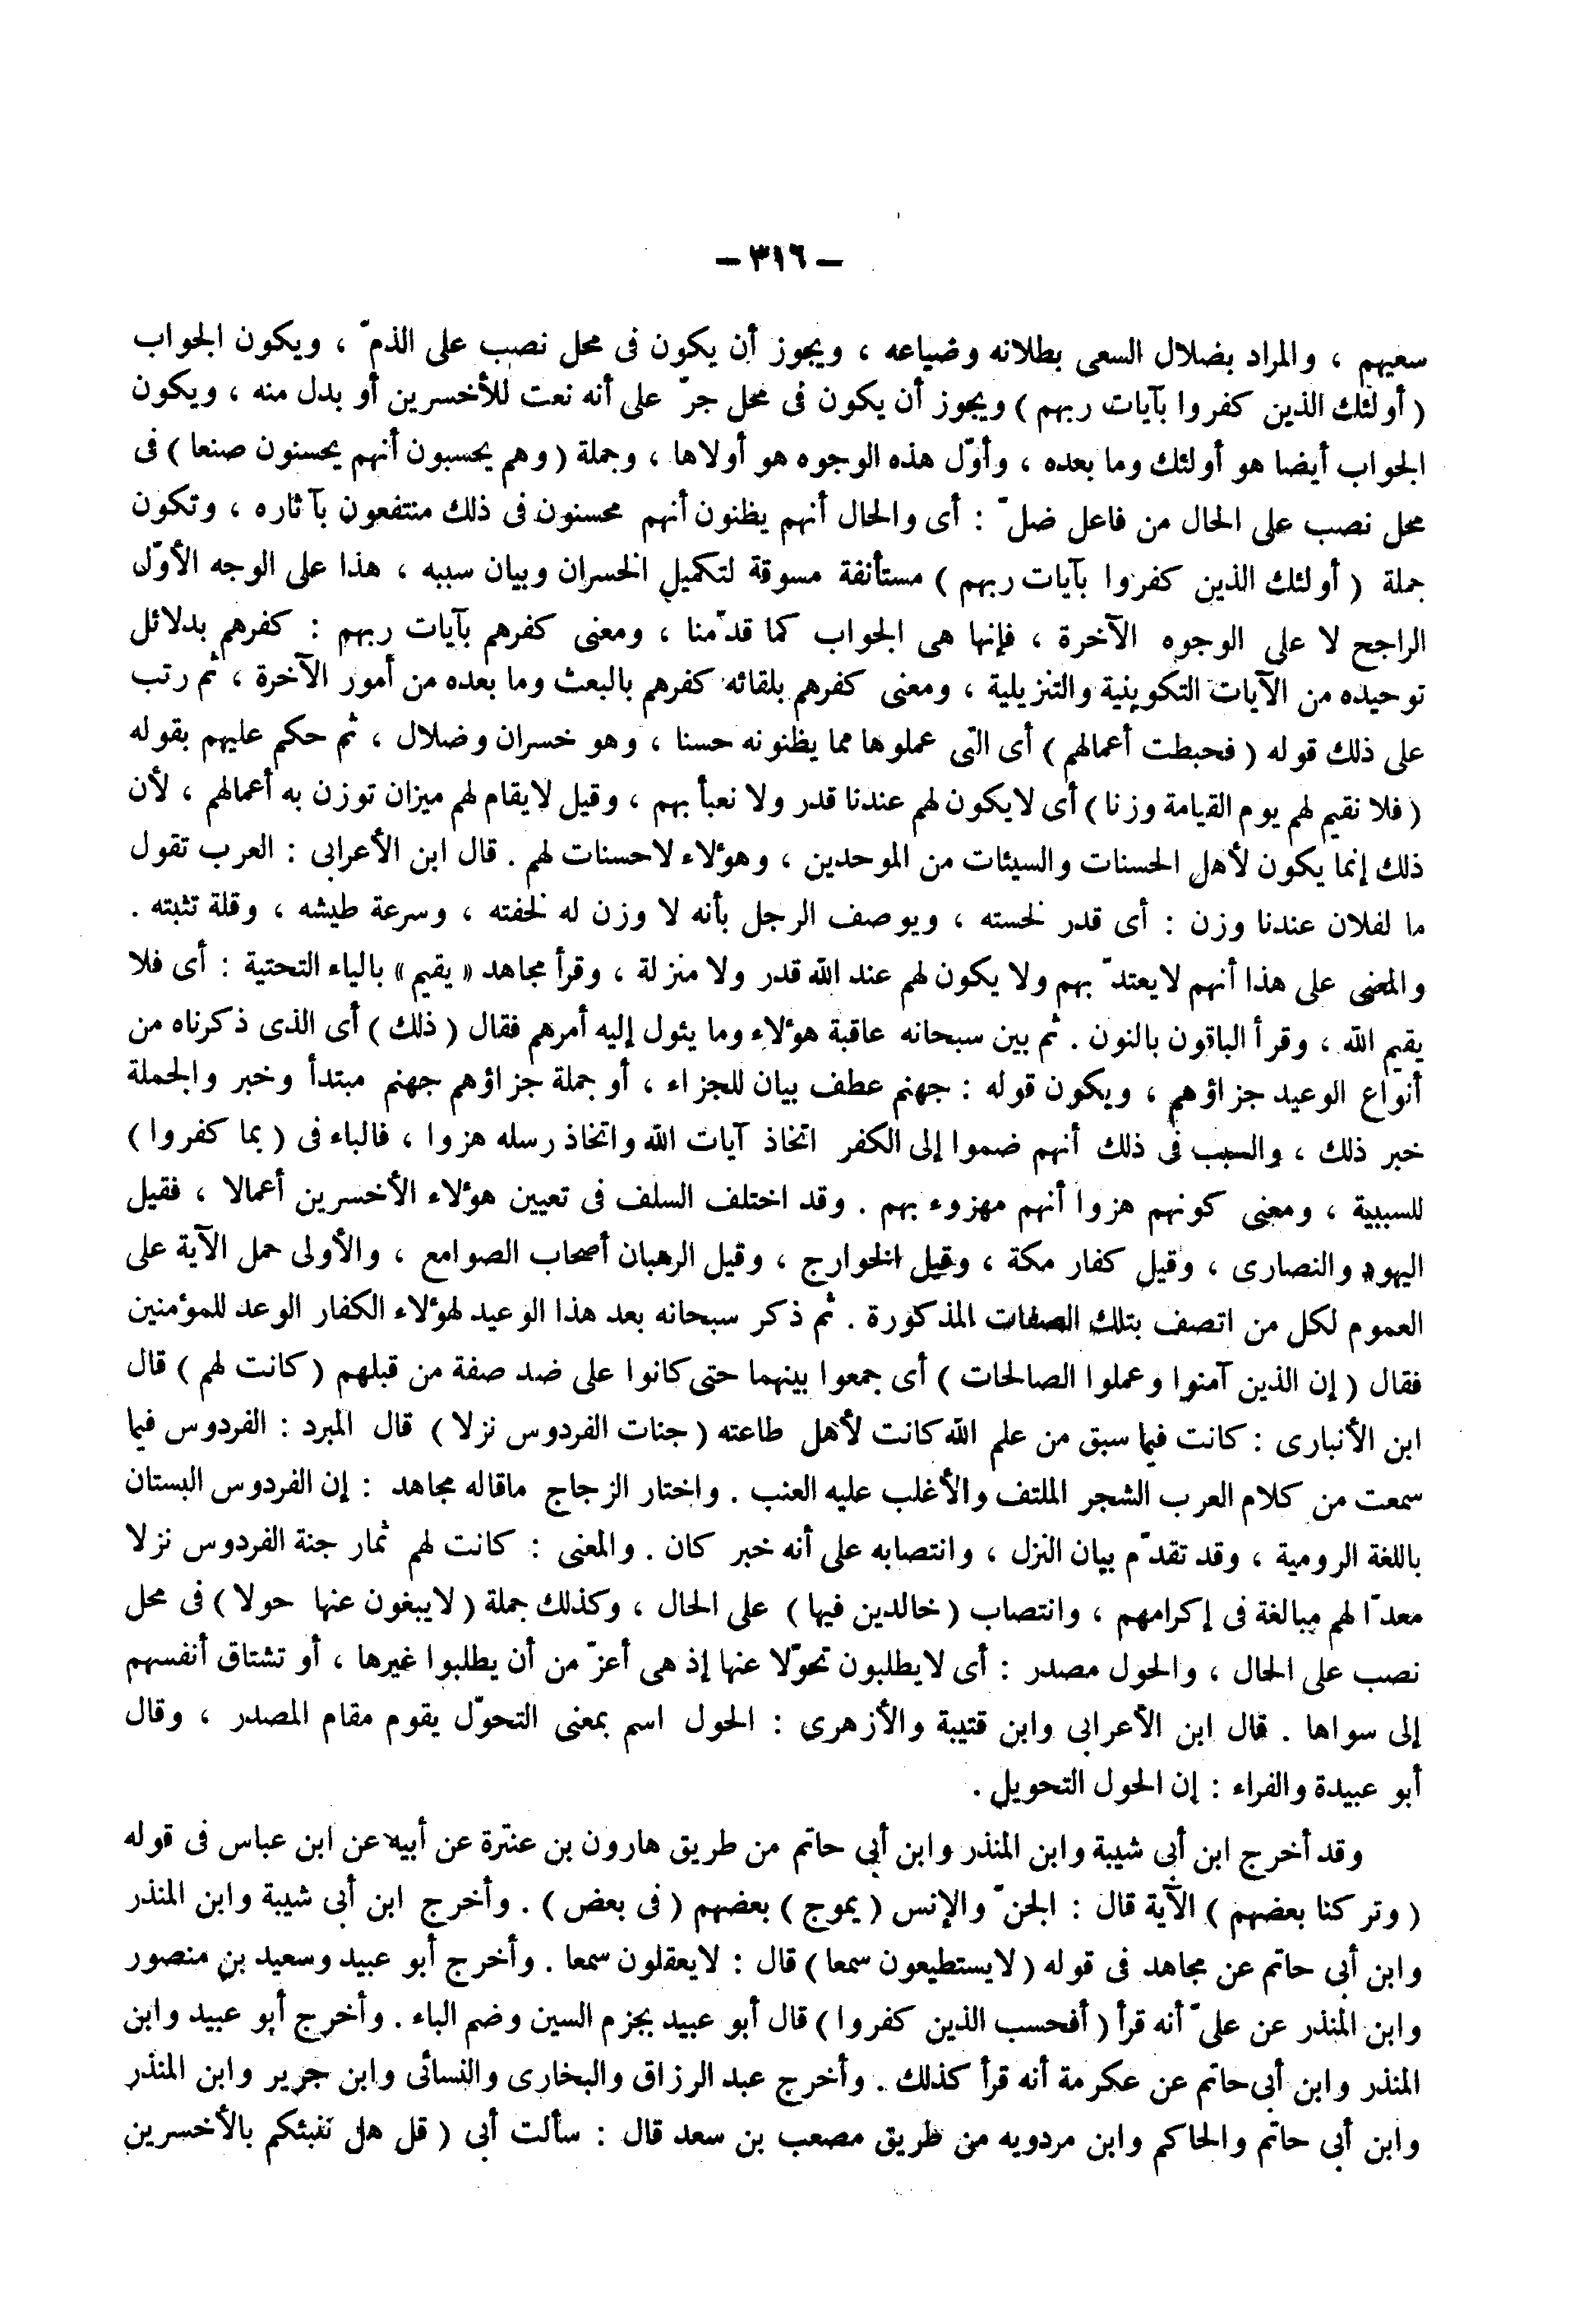 – ٣١٦ –
سعيهم ، والمراد بضلال السعى بطلانه وضياعه ، ويجوز أن يكون فى محل نصب على الذمّ ، ويكون الجواب
( أولئك الذين كفروا بآيات ربهم ) ويجوز أن يكون فى محل جرّ على أنه نعت للأخسرين أو بدل منه ، ويكون
الجواب أيضا هو أولئك وما بعده ، وأوّل هذه الوجوه هو أولاها ، وجملة ( وهم يحسبون أنهم يحسنون صنعا ) فى
محل نصب على الحال من فاعل ضلّ : أى والحال أنهم يظنون أنهم محسنون فى ذلك منتفعون بآثاره ، وتكون
جملة ( أولئك الذين كفروا بآيات ربهم ) مستأنفة مسوقة لتكميل الخسران وبيان سببه ، هذا على الوجه الأوّل
الراجح لا على الوجوه الآخرة ، فإنها هى الجواب كما قدّمنا ، ومعنى كفرهم بآيات ربهم : كفرهم بدلائل
توحيده من الآيات التكوينية والتنزيلية ، ومعنى كفرهم بلقائه كفرهم بالبعث وما بعده من أمور الآخرة ، ثم رتب
على ذلك قوله ( فحبطت أعمالهم ) أى التى عملوها مما يظنونه حسنا ، وهو خسران وضلال ، ثم حكم عليهم بقوله
( فلا نقيم لهم يوم القيامة وزنا ) أى لايكون لهم عندنا قدر ولا نعبأ بهم ، وقيل لايقام لهم ميزان توزن به أعمالهم ، لأن
ذلك إنما يكون لأهل الحسنات والسيئات من الموحدين ، وهؤلاء لاحسنات لهم . قال ابن الأعرابى : العرب تقول
ما لفلان عندنا وزن : أى قدر لخسته ، ويوصف الرجل بأنه لا وزن له لخفته ، وسرعة طيشه ، وقلة تثبته .
والمعنى على هذا أنهم لايعتدّ بهم ولا يكون لهم عند الله قدر ولا منزلة ، وقرأ مجاهد « يقيم » بالياء التحتية : أى فلا
يقيم الله ، وقرأ الباقون بالنون . ثم بين سبحانه عاقبة هؤلاء وما يئول إليه أمرهم فقال ( ذلك ) أى الذى ذكرناه من
أنواع الوعيد جزاؤهم ، ويكون قوله : جهنم عطف بيان للجزاء ، أو جملة جزاؤهم جهنم مبتدأ وخبر والجملة
خبر ذلك ، والسبب فى ذلك أنهم ضموا إلى الكفر اتخاذ آيات الله واتخاذ رسله هزوا ، فالباء فى ( بما كفروا )
للسببية ، ومعنى كونهم هزوا أنهم مهزوء بهم . وقد اختلف السلف فى تعيين هؤلاء الأخسرين أعمالا ، فقيل
اليهود والنصارى ، وقيل كفار مكة ، وقيل الخوارج ، وقيل الرهبان أصحاب الصوامع ، والأولى حمل الآية على
العموم لكل من اتصف بتلك الصفات المذكورة . ثم ذكر سبحانه بعد هذا الوعيد لهؤلاء الكفار الوعد للمؤمنين
فقال ( إن الذين آمنوا وعملوا الصالحات ) أى جمعوا بينهما حتى كانوا على ضد صفة من قبلهم ( كانت لهم ) قال
ابن الأنبارى : كانت فيما سبق من علم الله كانت لأهل طاعته ( جنات الفردوس نزلا ) قال المبرد : الفردوس فيما
سمعت من كلام العرب الشجر الملتف والأغلب عليه العنب . واختار الزجاج ماقاله مجاهد : إن الفردوس البستان
باللغة الرومية ، وقد تقدّم بيان النزل ، وانتصابه على أنه خبر كان . والمعنى : كانت لهم ثمار جنة الفردوس نزلا
معدّا لهم مبالغة فى إكرامهم ، وانتصاب ( خالدين فيها ) على الحال ، وكذلك جملة ( لايبغون عنها حولا ) فى محل
نصب على الحال ، والحول مصدر : أى لايطلبون تحوّلا عنها إذ هى أعزّ من أن يطلبوا غيرها ، أو تشتاق أنفسهم
إلى سواها . قال ابن الأعرابى وابن قتيبة والأزهرى : الحول اسم بمعنى التحوّل يقوم مقام المصدر ، وقال
أبو عبيدة والفراء : إن الحول التحويل .
وقد أخرج ابن أبى شيبة وابن المنذر وابن أبى حاتم من طريق هارون بن عنترة عن أبيه عن ابن عباس فى قوله
( وتركنا بعضهم ) الآية قال : الجنّ والإنس ( يموج ) بعضهم ( فى بعض ) . وأخرج ابن أبى شيبة وابن المنذر
وابن أبى حاتم عن مجاهد فى قوله ( لايستطيعون سمعا ) قال : لايعقلون سمعا . وأخرج أبو عبيد وسعيد بن منصور
وابن المنذر عن علىّ أنه قرأ ( أفحسب الذين كفروا ) قال أبو عبيد بجزم السين وضم الباء . وأخرج أبو عبيد وابن
المنذر وابن أبى حاتم عن عكرمة أنه قرأ كذلك . وأخرج عبد الرزاق والبخارى والنسائى وابن جرير وابن المنذر
وابن أبى حاتم والحاكم وابن مردويه من طريق مصعب بن سعد قال : سألت أبى ( قل هل ننبئكم بالأخسرين